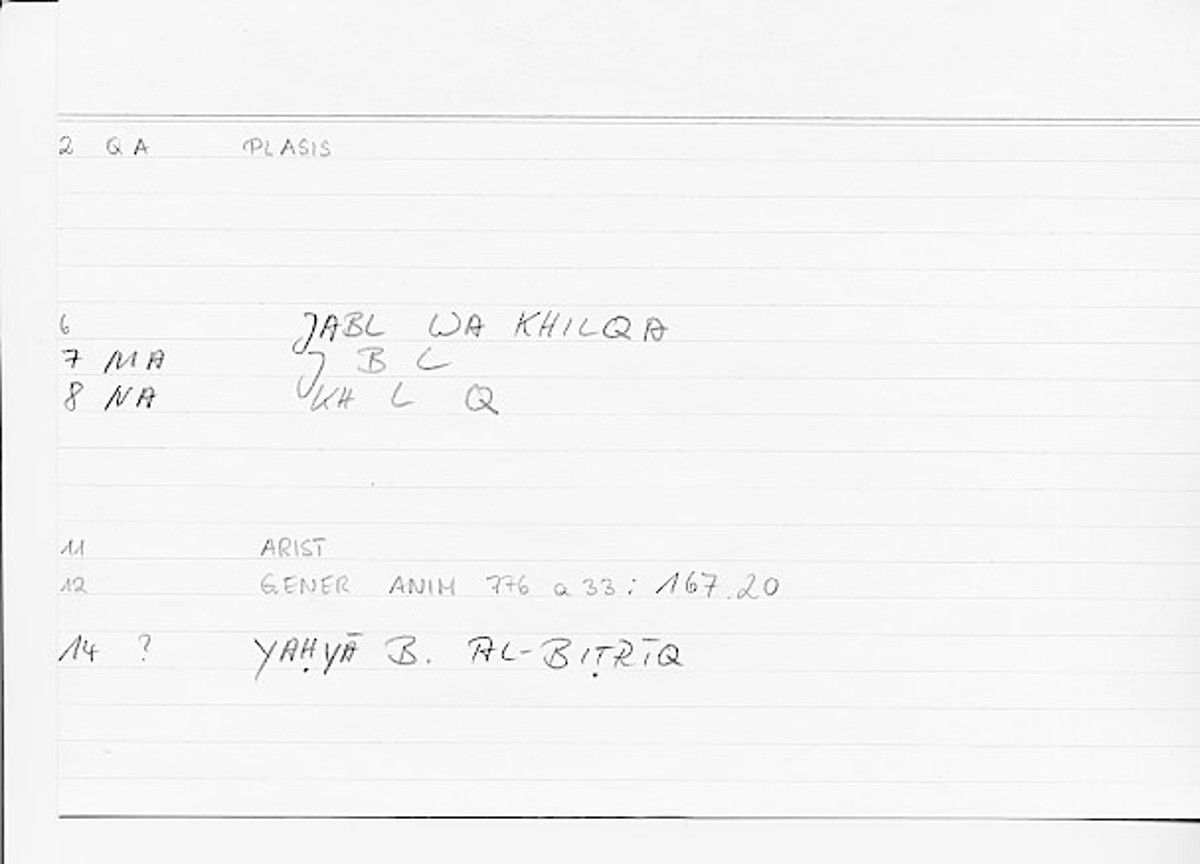 2 QA PLASIS
6 JABL WA KHILQA
7 MA J B L
8 NA KH L Q
11 ARIST
12 GENER ANIM 776 a 33: 167.20
14 ? YAḤYĀ B. AL-BIṬRĪQ